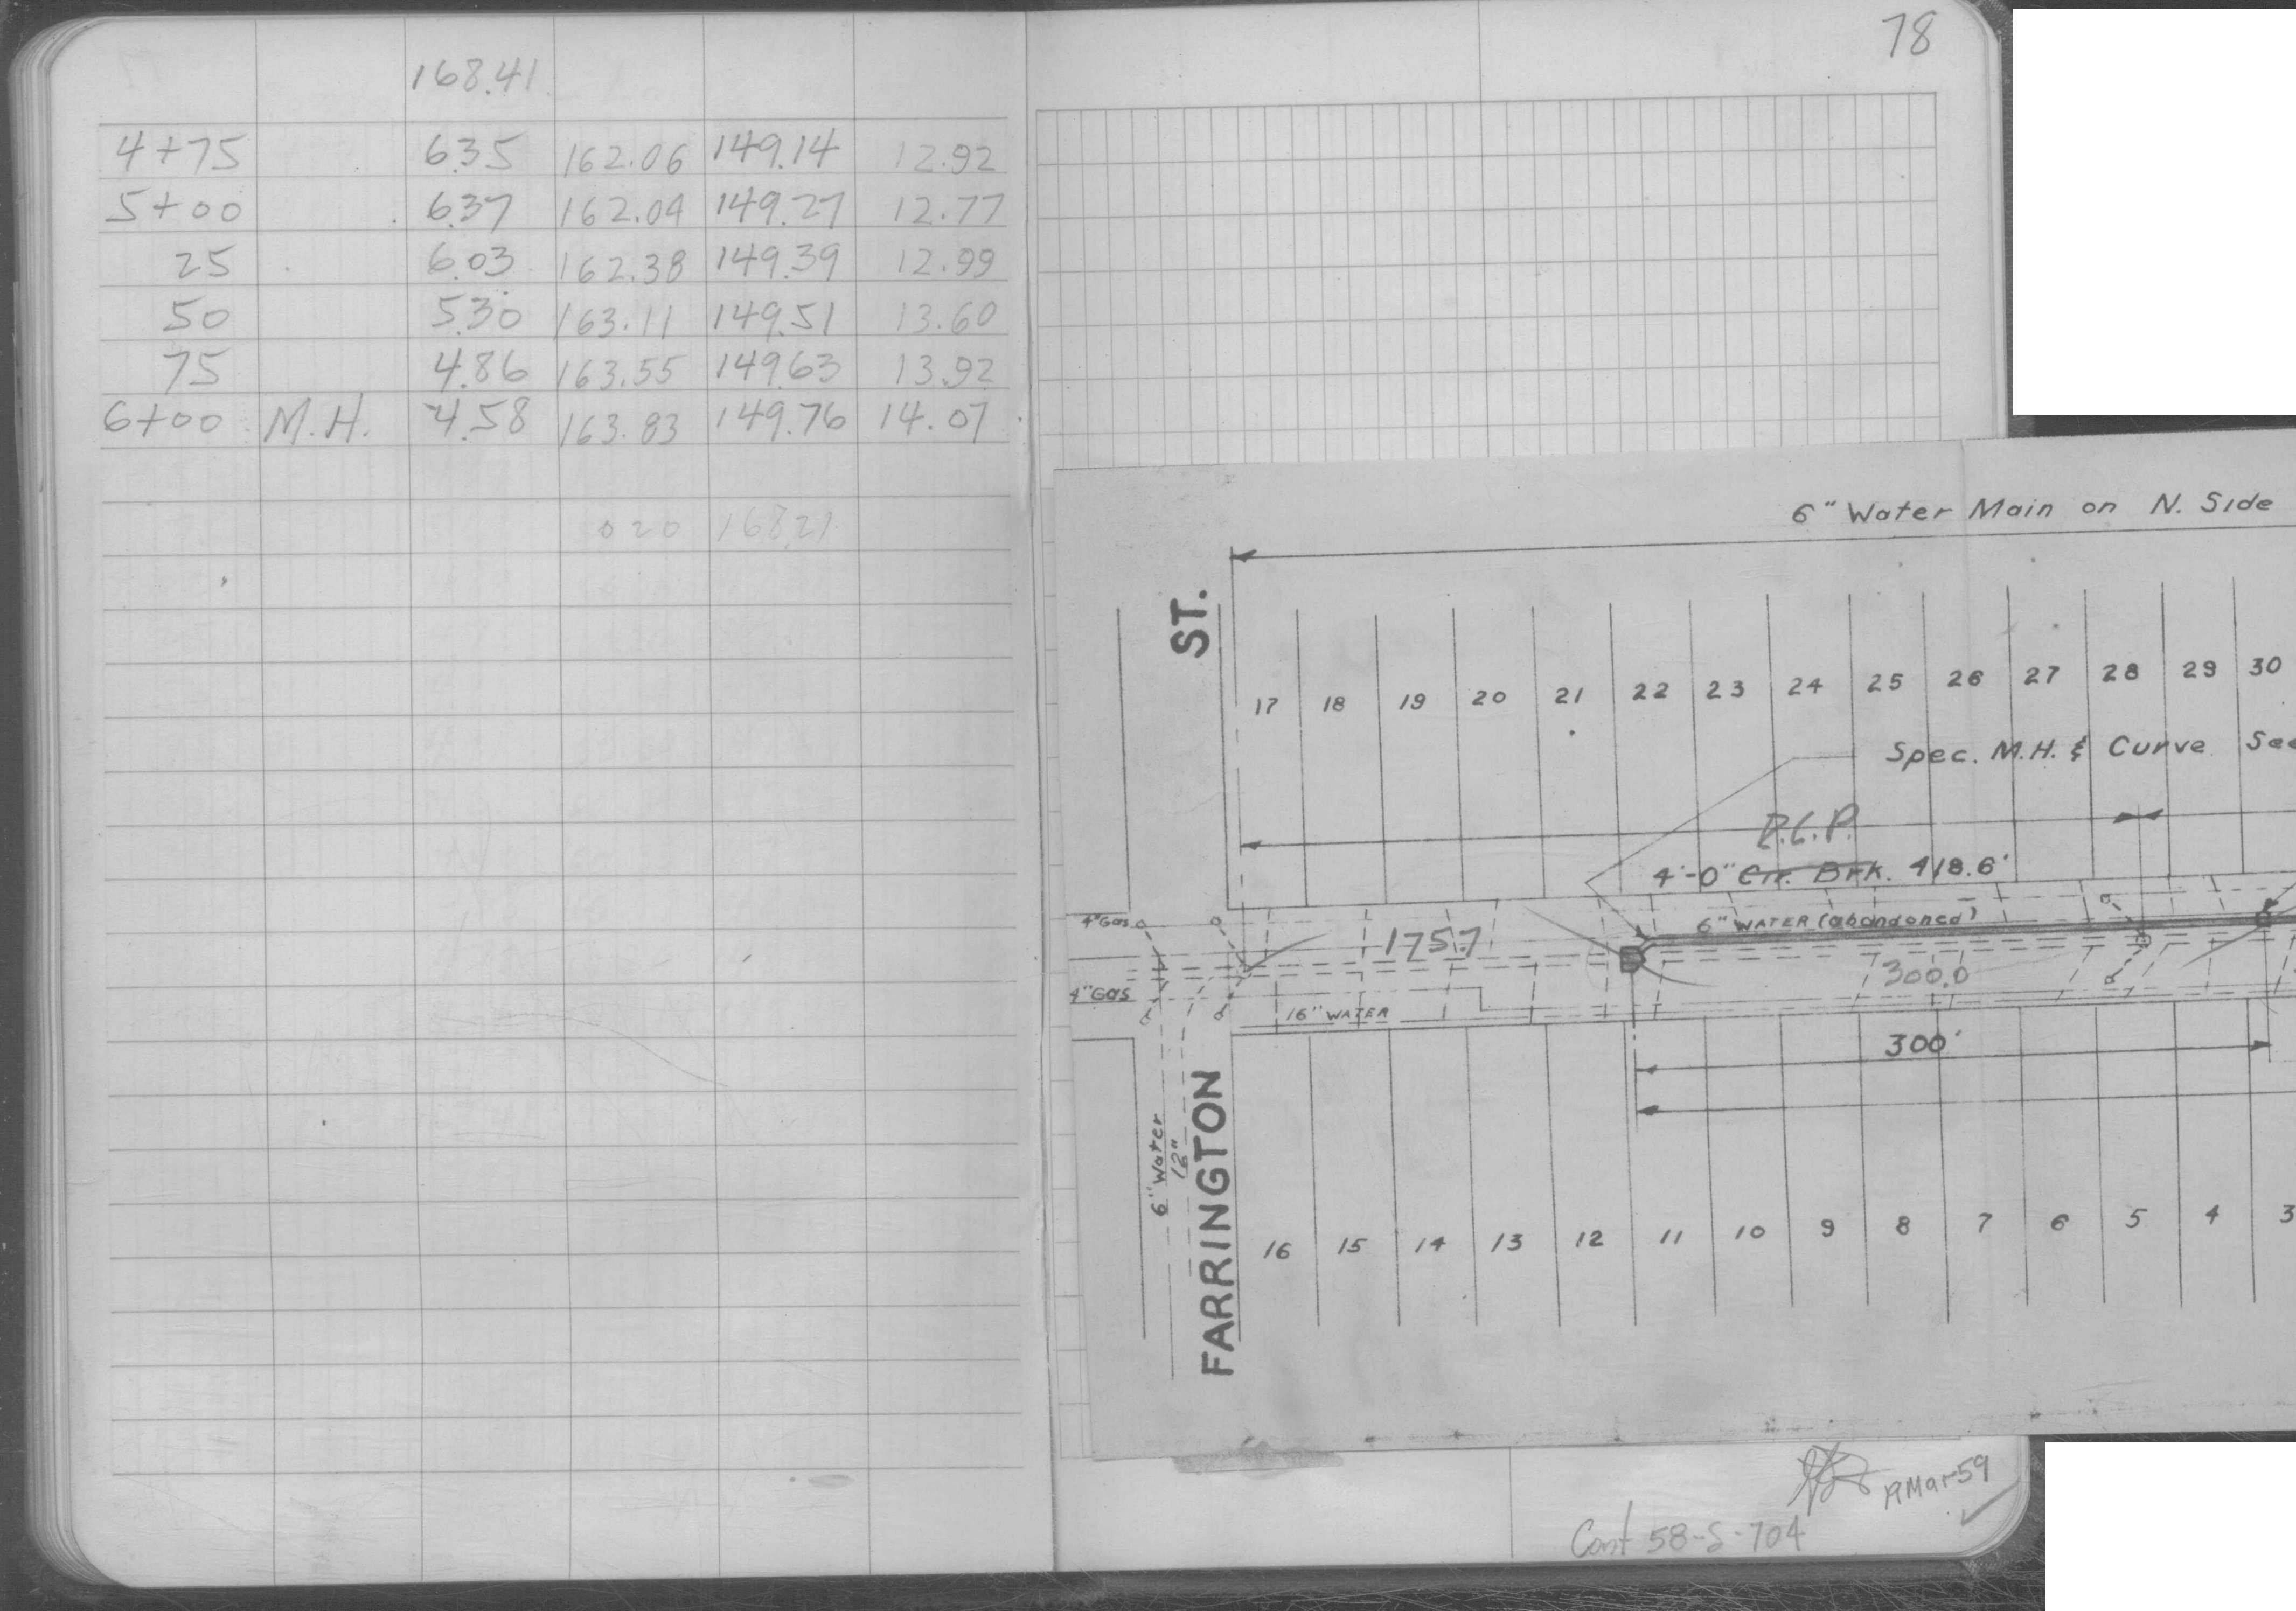 168.41
4+75 6.35 162.06 149.14 12.92
5+00 6.37 162.04 149.27 12.77
25 6.03 162.38 149.39 12.99
50 5.30 163.11 149.51 13.60
75 4.86 163.55 149.63 13.92
6+00 M.H. 4.58 163.83 149.76 14.07
0 20 168.21
78
6" Water Main on N. Side
ST.
17 18 19 20 21 22 23 24 25 26 27 28 29 30
Spec. M.H. & Curve See
R.C.P.
4'-0" Cir. Brk. 418.6'
4" Gas
6" WATER (abandoned)
175.7
300.0
4" Gas
16" WATER
300'
6" Water
12"
FARRINGTON
16 15 14 13 12 11 10 9 8 7 6 5 4 3
19 Mar 59
Cont 58-S-704